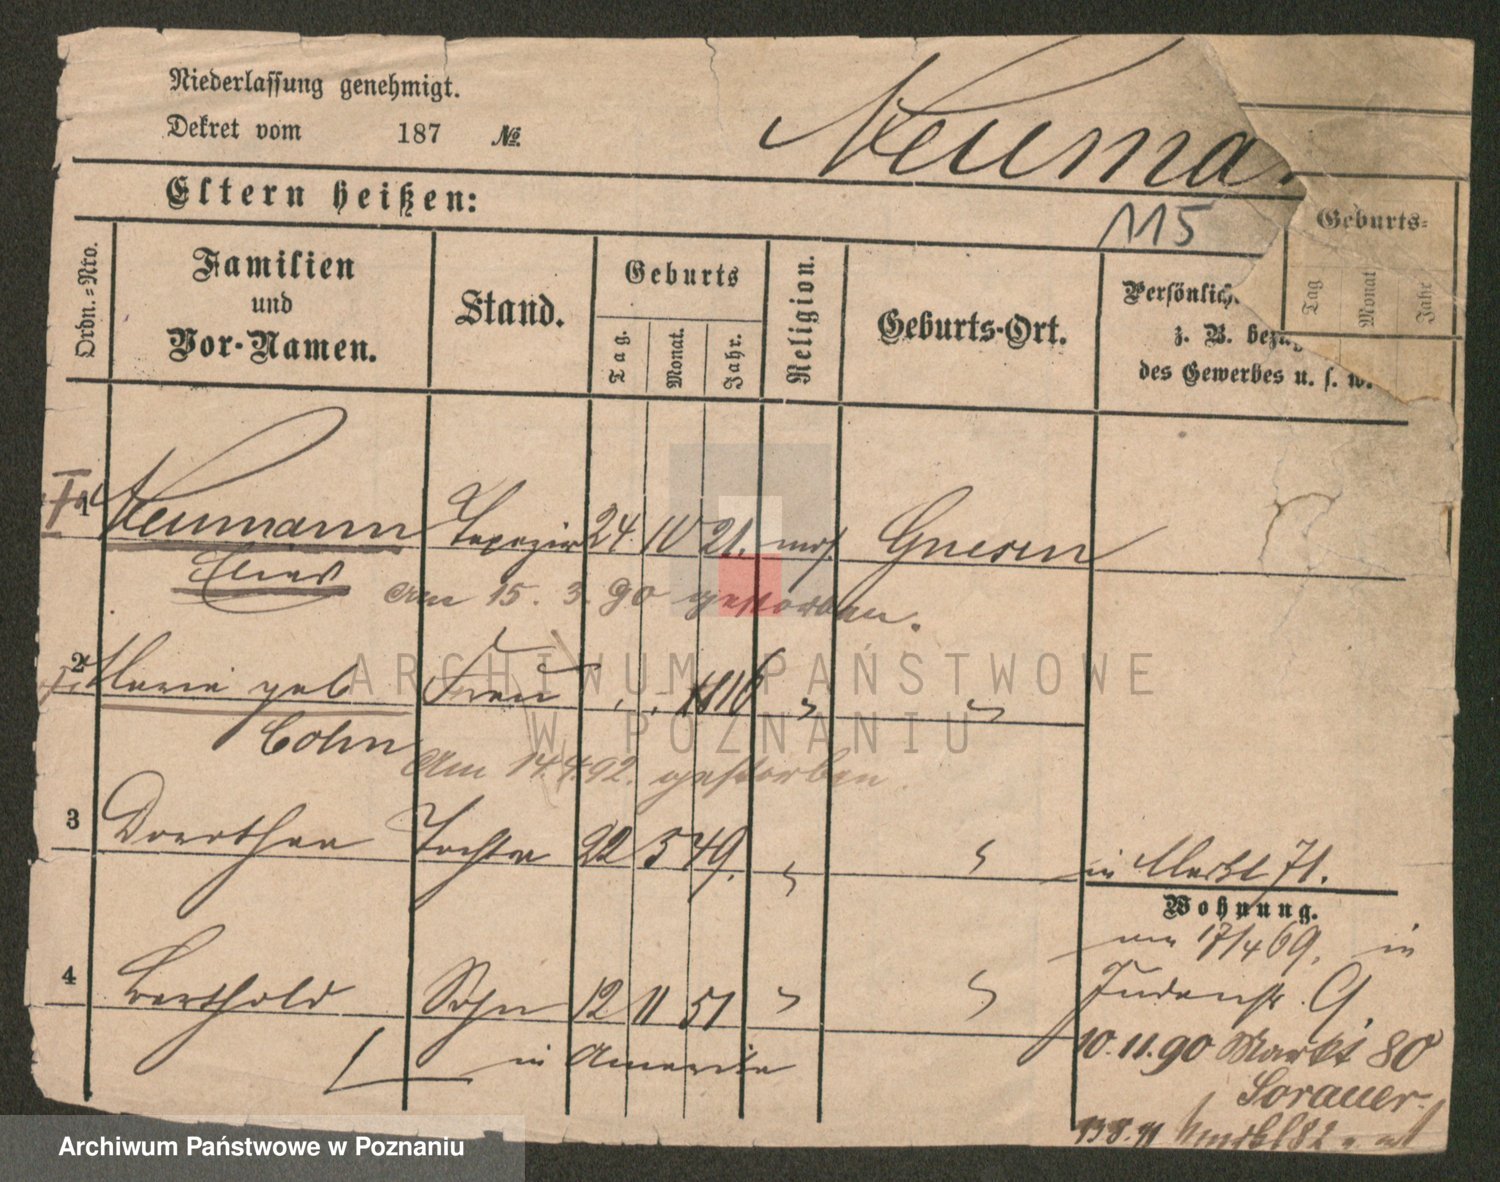 Niederlassung genehmigt.
Dekret vom 187 №
Neuma
Eltern heißen:
115
Ordn.-Nro.
Familien und Vor-Namen.
Stand.
Geburts
Tag.
Monat.
Jahr.
Religion.
Geburts-Ort.
Persönlich
z. B. bezüg
des Gewerbes u. s. w.
Geburts-
Tag
Monat
Jahr
1 Neumann Tapezir 24. 10 21. mos. Gnesen
Elias
Am 15. 3. 90 gestorben.
2 Marie geb Frau 1816 " "
Cohn
Am 14.4.92. gestorben
3 Dorothea Tochter 22 5 49. " "
in Markt 71.
Wohnung.
17/4 69. in
4 Berthold Sohn 12 11 51 " "
Judenstr. 9.
in Amerika
10.11.90 Markt 80
Sorauer
ARCHIWUM PAŃSTWOWE
W POZNANIU
Archiwum Państwowe w Poznaniu